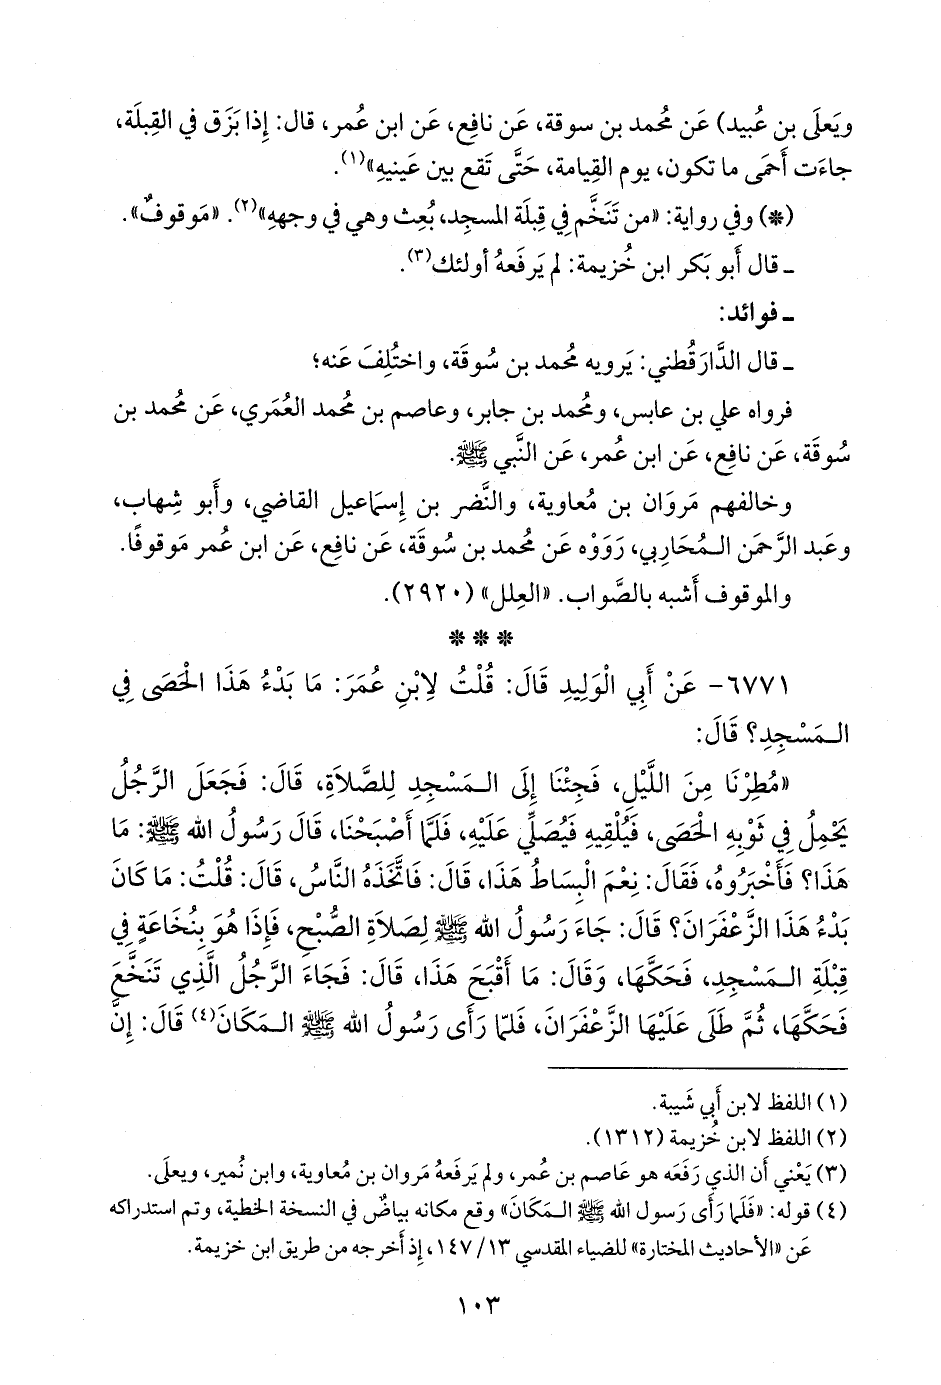 ويَعلَى بن عُبيد) عَن مُحمد بن سوقة، عَن نافِع، عَن ابن عُمر، قال: إِذا بَزَق في القِبلَة،
جاءَت أَحمَى ما تكون، يوم القِيامة، حَتَّى تَقع بين عَينيهِ»(١).
(*) وفي رواية: «من تَنَخَّم في قِبلَة المسجِد، بُعِث وهي في وجههِ»(٢). «مَوقوفٌ».
ـ قال أَبو بَكر ابن خُزيمة: لم يَرفَعهُ أولئك(٣).
ـ فوائد:
ـ قال الدَّارَقُطني: يَرويه مُحمد بن سُوقَة، واختُلِفَ عَنه؛
فرواه علي بن عابس، ومُحمد بن جابر، وعاصم بن مُحمد العُمَري، عَن مُحمد بن
سُوقَة، عَن نافِع، عَن ابن عُمر، عَن النَّبي ﷺ.
وخالفهم مَروَان بن مُعاوية، والنَّضر بن إِسماعيل القاضي، وأَبو شِهاب،
وعَبد الرَّحمَن المُحَاربي، رَوَوْه عَن مُحمد بن سُوقَة، عَن نافِع، عَن ابن عمر مَوقوفًا.
والموقوف أَشبه بالصَّواب. «العِلل» (٢٩٢٠).
***
٦٧٧١- عَنْ أَبي الْوَلِيدِ قَالَ: قُلْتُ لِابْنِ عُمَرَ: مَا بَدْءُ هَذَا الْحَصَى فِي
المَسْجِدِ؟ قَالَ:
«مُطِرْنَا مِنَ اللَّيْلِ، فَجِئْنَا إِلَى المَسْجِدِ لِلصَّلاَةِ، قَالَ: فَجَعَلَ الرَّجُلُ
يَحْمِلُ فِي ثَوْبِهِ الْحَصَى، فَيُلْقِيهِ فَيُصَلِّي عَلَيْهِ، فَلَمَّا أَصْبَحْنَا، قَالَ رَسُولُ الله ﷺ: مَا
هَذَا؟ فَأَخْبَرُوهُ، فَقَالَ: نِعْمَ الْبِسَاطُ هَذَا، قَالَ: فَاتَّخَذَهُ النَّاسُ، قَالَ: قُلْتُ: مَا كَانَ
بَدْءُ هَذَا الزَّعْفَرَانَ؟ قَالَ: جَاءَ رَسُولُ الله ﷺ لِصَلاَةِ الصُّبْحِ، فَإِذَا هُوَ بِنُخَاعَةٍ فِي
قِبْلَةِ المَسْجِدِ، فَحَكَّهَا، وَقَالَ: مَا أَقْبَحَ هَذَا، قَالَ: فَجَاءَ الرَّجُلُ الَّذِي تَنَخَّعَ
فَحَكَّهَا، ثُمَّ طَلَى عَلَيْهَا الزَّعْفَرَانَ، فَلَمَّا رَأَى رَسُولُ الله ﷺ المَكَانَ(٤) قَالَ: إِنَّ
(١) اللفظ لابن أَبي شَيبة.
(٢) اللفظ لابن خُزيمة (١٣١٢).
(٣) يَعْني أَن الذي رَفَعَه هو عَاصم بن عُمر، ولم يَرفَعهُ مَروان بن مُعاوية، وابن نُمير، ويعلَى.
(٤) قوله: «فَلَمَّا رَأَى رَسول الله ﷺ المَكَانَ» وقع مكانه بياضٌ في النسخة الخطية، وتم استدراكه
عَن «الأحاديث المختارة» للضياء المقدسي ١٣/ ١٤٧، إِذ أَخرجه من طريق ابن خزيمة.
١٠٣